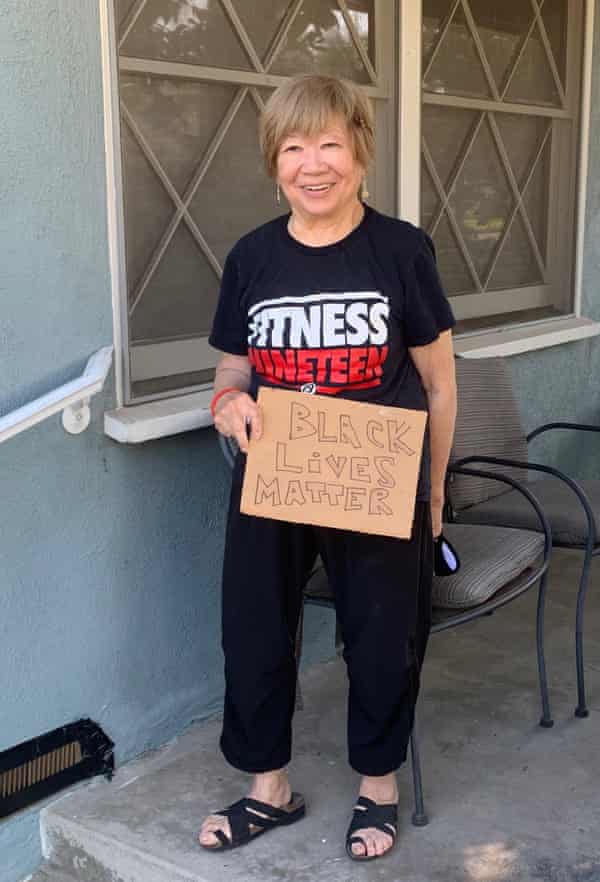 FITNESS
NINETEEN
BLACK
LiVES
MATTER